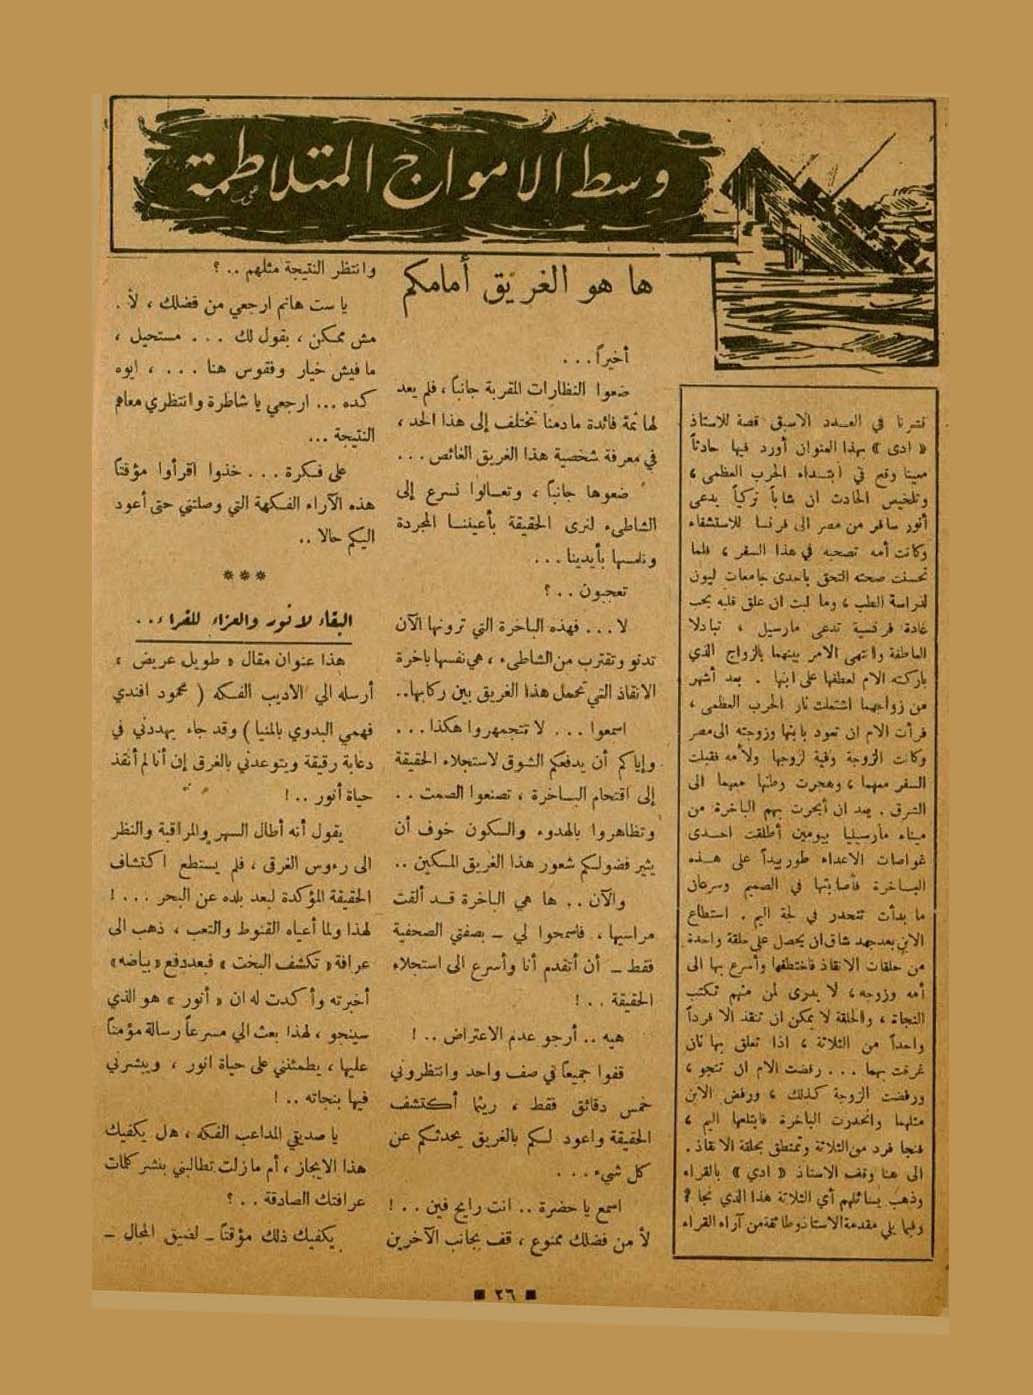 وسط الامواج المتلاطمة
نشرنا في العدد الاسبق قصة للاستاذ
« ادى » بهذا العنوان أورد فيها حادثاً
معينا وقع في ابتداء الحرب العظمى ،
وتلخيص الحادث ان شاباً تركياً يدعى
أنور سافر من مصر الى فرنسا للاستشفاء
وكانت أمه تصحبه في هذا السفر ، فلما
تحسنت صحته التحق باحدى جامعات ليون
لدراسة الطب ، وما لبث ان علق قلبه بحب
غادة فرنسية تدعى مارسيل ، تبادلا
العاطفة وانتهى الامر بينهما بالزواج الذي
باركته الام لعطفها على ابنها . بعد أشهر
من زواجهما اشتعلت نار الحرب العظمى ،
فرأت الام ان تعود بابنها وزوجته الى مصر
وكانت الزوجة وفية لزوجها ولأمه فقبلت
السفر معهما ، وهجرت وطنها معهما الى
الشرق . بعد ان أبحرت بهم الباخرة من
ميناء مارسيليا بيومين أطلقت احدى
غواصات الاعداء طوربيداً على هذه
الباخرة فأصابتها في الصميم وسرعان
ما بدأت تنحدر في لجة اليم . استطاع
الابن بعد جهد شاق ان يحصل على حلقة واحدة
من حلقات الانقاذ فاختطفها وأسرع بها الى
أمه وزوجه ، لا يدرى لمن منهم تكتب
النجاة ، والحلقة لا يمكن ان تنقذ الا فرداً
واحداً من الثلاثة ، اذا تعلق بها ثان
غرقت بهما ... رفضت الام ان تنجو ،
ورفضت الزوجة كذلك ، ورفض الابن
مثلهما وانحدرت الباخرة فابتلعها اليم ،
فنجا فرد من الثلاثة وتمنطق بحلقة الانقاذ .
الى هنا وقف الاستاذ « ادي » بالقراء
وذهب يسائلهم أي الثلاثة هذا الذي نجا ؟
وفيما يلي مقدمة الاستاذ وطائفة من آراء القراء
ها هو الغريق أمامكم
أخيراً ...
ضعوا النظارات المقربة جانباً ، فلم يعد
لها ثمة فائدة مادمنا نختلف إلى هذا الحد ،
في معرفة شخصية هذا الغريق الغائص ...
ضعوها جانباً ، وتعالوا نسرع إلى
الشاطىء لنرى الحقيقة بأعيننا المجردة
ونلمسها بأيدينا ...
تعجبون .. ؟
لا ... فهذه الباخرة التي ترونها الآن
تدنو وتقترب من الشاطىء ، هي نفسها باخرة
الانقاذ التي تحمل هذا الغريق بين ركابها..
اسمعوا ... لا تتجمهروا هكذا ...
وإياكم أن يدفعكم الشوق لاستجلاء الحقيقة
إلى اقتحام الباخرة ، تصنعوا الصمت ..
وتظاهروا بالهدوء والسكون خوف أن
يثير فضولكم شعور هذا الغريق المسكين ..
والآن .. ها هي الباخرة قد ألقت
مراسيها ، فاسمحوا لي – بصفتي الصحفية
فقط – أن أتقدم أنا وأسرع الى استجلاء
الحقيقة .. !
هيه .. أرجو عدم الاعتراض .. !
قفوا جميعاً في صف واحد وانتظروني
خمس دقائق فقط ، ريثما أكتشف
الحقيقة واعود لكم بالغريق يحدثكم عن
كل شيء ...
اسمع يا حضرة .. انت رايح فين .. !
لأ من فضلك ممنوع ، قف بجانب الآخرين
وانتظر النتيجة مثلهم .. ؟
يا ست هانم ارجعي من فضلك ، لأ .
مش ممكن ، بقول لك ... مستحيل ،
مافيش خيار وفقوس هنا ... ، ايوه
كده ... ارجعي يا شاطرة وانتظري معاهم
النتيجة ...
على فكرة ... خذوا اقرأوا مؤقتاً
هذه الآراء الفكهة التي وصلتني حتى أعود
اليكم حالا ..
***
البقاء لانور والعزاء للقراء ..
هذا عنوان مقال « طويل عريض »
أرسله الي الاديب الفكه ( محمود افندي
فهمي البدوي بالمنيا ) وقد جاء يهددني في
دعابة رقيقة ويتوعدني بالغرق إن أنا لم أنقذ
حياة أنور .. !
يقول أنه أطال السهر والمراقبة والنظر
الى رءوس الغرقى ، فلم يستطع اكتشاف
الحقيقة المؤكدة لبعد بلده عن البحر ... !
لهذا ولما أعياه القنوط والتعب ، ذهب الى
عرافة « تكشف البخت » فبعد دفع « بياضه »
أخبرته وأكدت له ان « أنور » هو الذي
سينجو ، لهذا بعث الي مسرعاً رسالة مؤمناً
عليها ، يطمئنني على حياة انور ، ويبشرني
فيها بنجاته .. !
يا صديقي المداعب الفكه ، هل يكفيك
هذا الايجاز ، أم مازلت تطالبني بنشر كلمات
عرافتك الصادقة .. ؟
يكفيك ذلك مؤقتاً – لضيق المجال –
٢٦